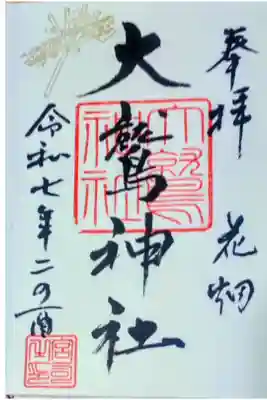 奉拝 花畑
大鷲神社
令和七年二の酉
大鷲
神社
宮司
之印